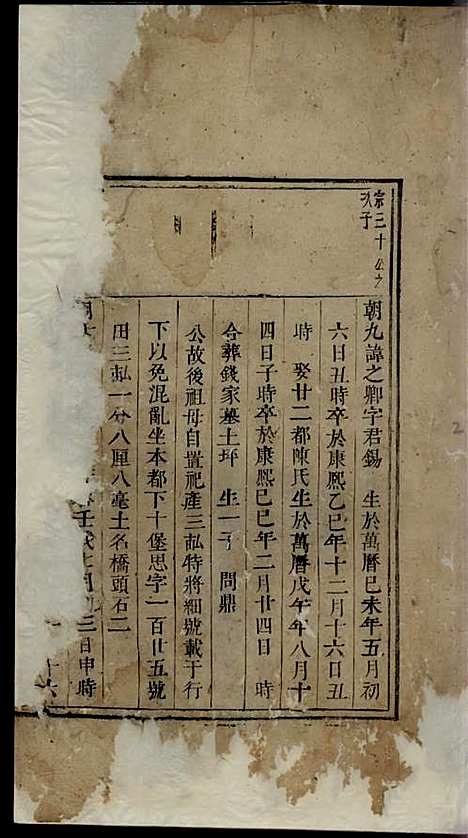 宗三十公之
次子
朝九諱之卿字君錫　生於萬曆己未年五月初
六日丑時卒於康熙乙巳年十二月十六日丑
時　娶廿二都陳氏生於萬曆戊午年八月十
四日子時卒於康熙己巳年二月廿四日　時
合葬錢家墓土坪　生一子　問鼎
公故後祖母自置祀產三畝特將細號載于行
下以免混亂坐本都下十堡思字一百廿五號
田三畝一分八厘八毫土名橋頭石二
壬戌七月初三日申時